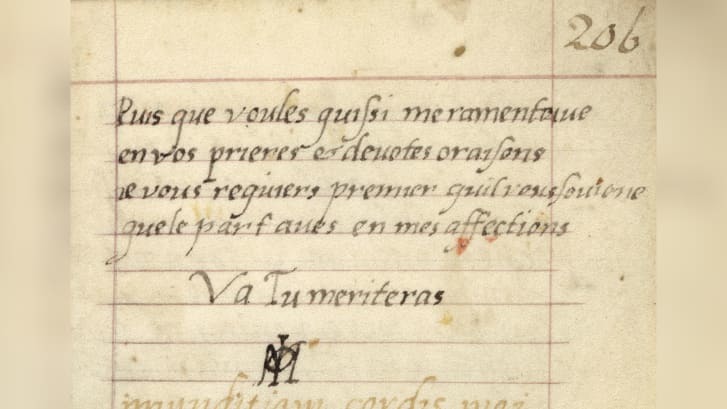 206
Puis que voules quissi me ramentoiue
en vos prieres & devotes oraisons
ie vous requiers premier quil vous souviene
quele part aves en mes affections
Va Tu meriteras
immunditiam cordis mei